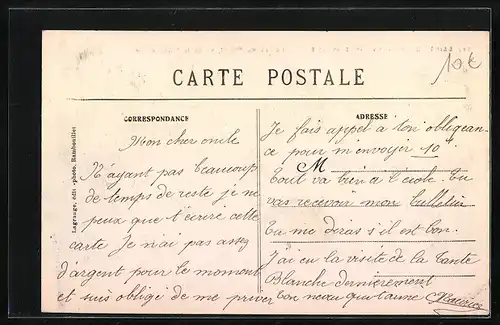 10€
CARTE POSTALE
CORRESPONDANCE
Mon cher oncle
N'ayant pas beaucoup
de temps de reste je ne
peux que t'écrire cette
carte Je n'ai pas assez
d'argent pour le moment
et suis obligé de me priver
ADRESSE
Je fais appel à ton obligean-
ce pour m'envoyer 10f
M
Tout va bien à l'école tu
vas recevoir mon bulletin
Tu me diras s'il est bon.
J'ai eu la visite de la tante
Blanche dernièrement
Ton neveu qui t'aime Maurice
Lagrange, édit.-photo, Rambouillet